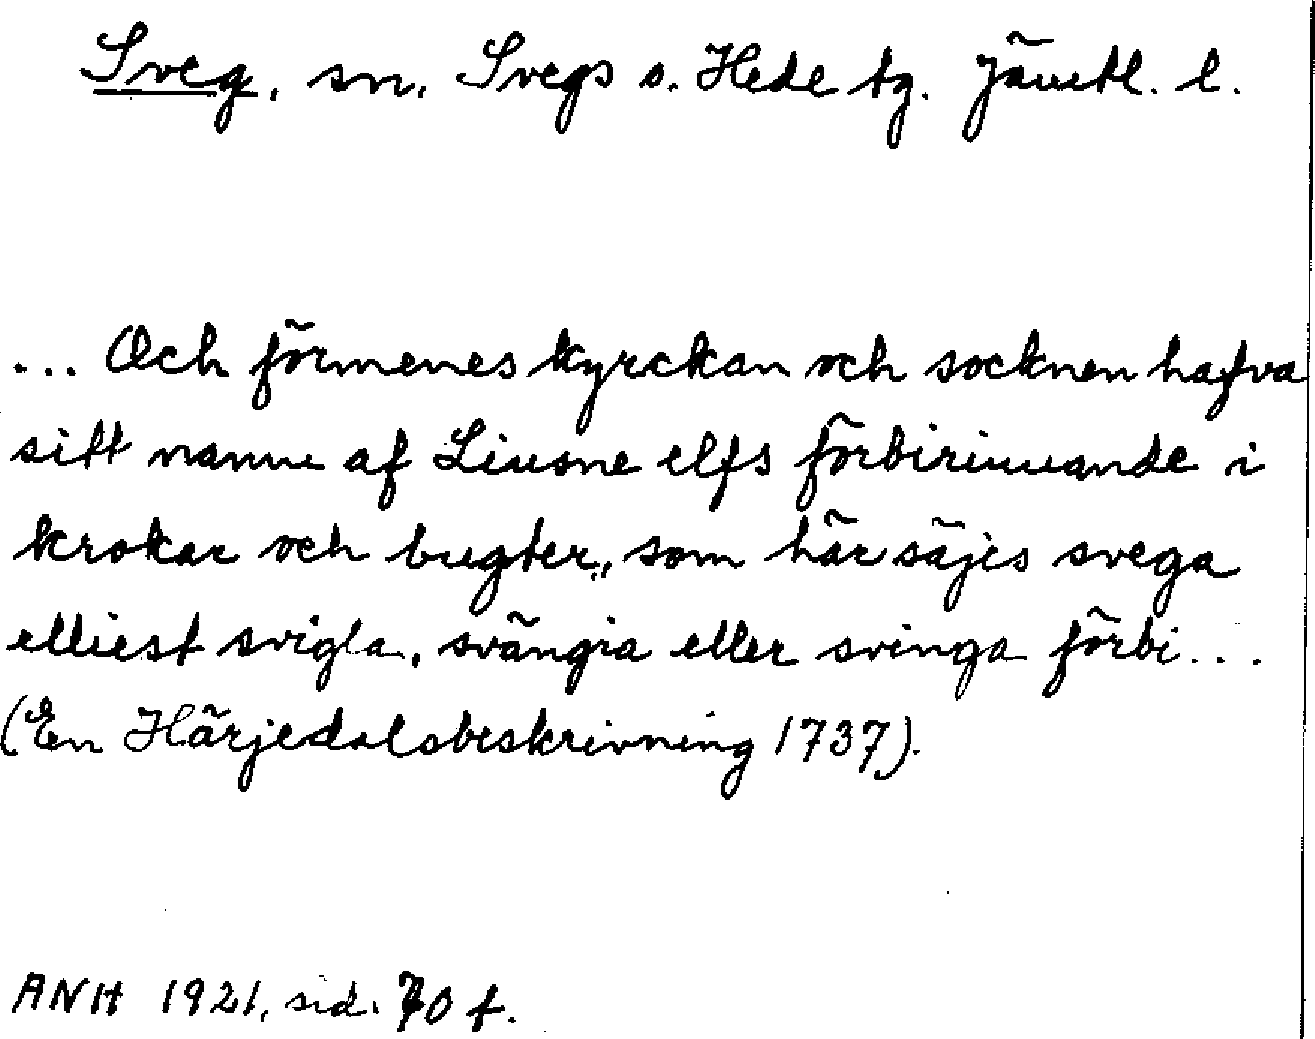 Sveg, sn, Svegs o. Hede tg. Jämtl. l.
... Och förmenes kyrckan och socknen hafva
sitt namn af Liusne elfs förbirinnande i
krokar och bugter, som här säjes svega
elliest svigla, svängia eller svinga förbi...
(En Härjedalsbeskrivning 1737).
ANH 1921, sid. 70 f.